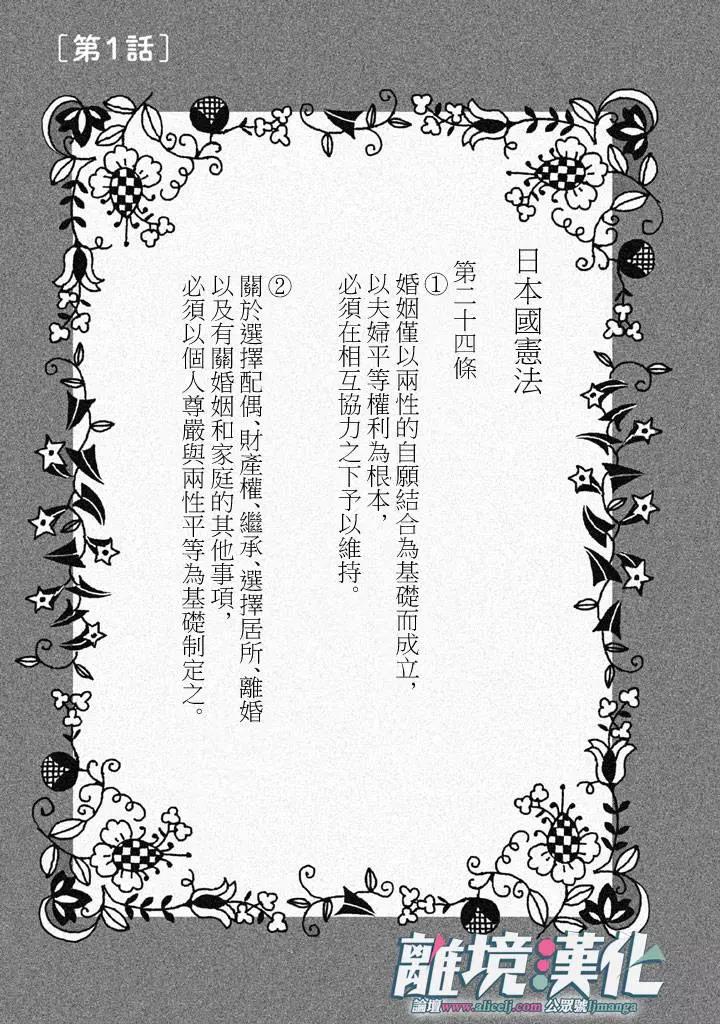 ［第1話］
日本國憲法
第二十四條
①
婚姻僅以兩性的自願結合為基礎而成立，
以夫婦平等權利為根本，
必須在相互協力之下予以維持。
②
關於選擇配偶、財產權、繼承、選擇居所、離婚
以及有關婚姻和家庭的其他事項，
必須以個人尊嚴與兩性平等為基礎制定之。
離境漢化
論壇www.alicelj.com 公眾號ljmanga